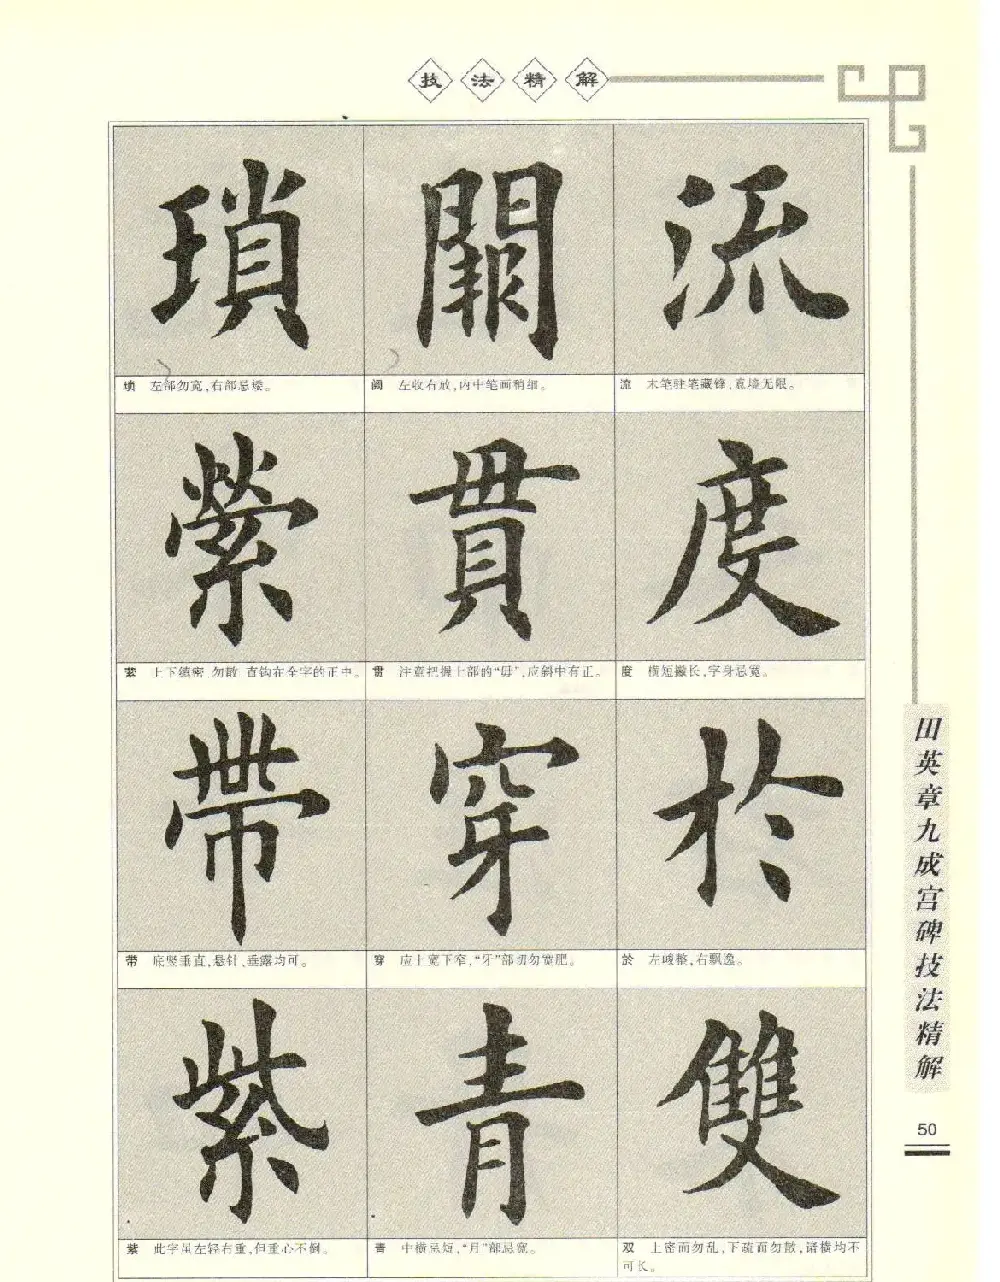 技法精解
瑣 闕 流
琐 左部勿宽,右部忌矮。
阙 左收右放,内中笔画稍细。
流 末笔驻笔藏锋,意境无限。
縈 貫 度
萦 上下缜密,勿散,直钩在全字的正中。
贯 注意把握上部的“毌”,应斜中有正。
度 横短撇长,字身忌宽。
帶 穿 於
带 底竖垂直,悬针、垂露均可。
穿 应上宽下窄,“牙”部切勿宽肥。
於 左峻整,右飘逸。
紫 青 雙
紫 此字虽左轻右重,但重心不倒。
青 中横忌短,“月”部忌宽。
双 上密而勿乱,下疏而勿散,诸横均不
可长。
田英章九成宫碑技法精解
50